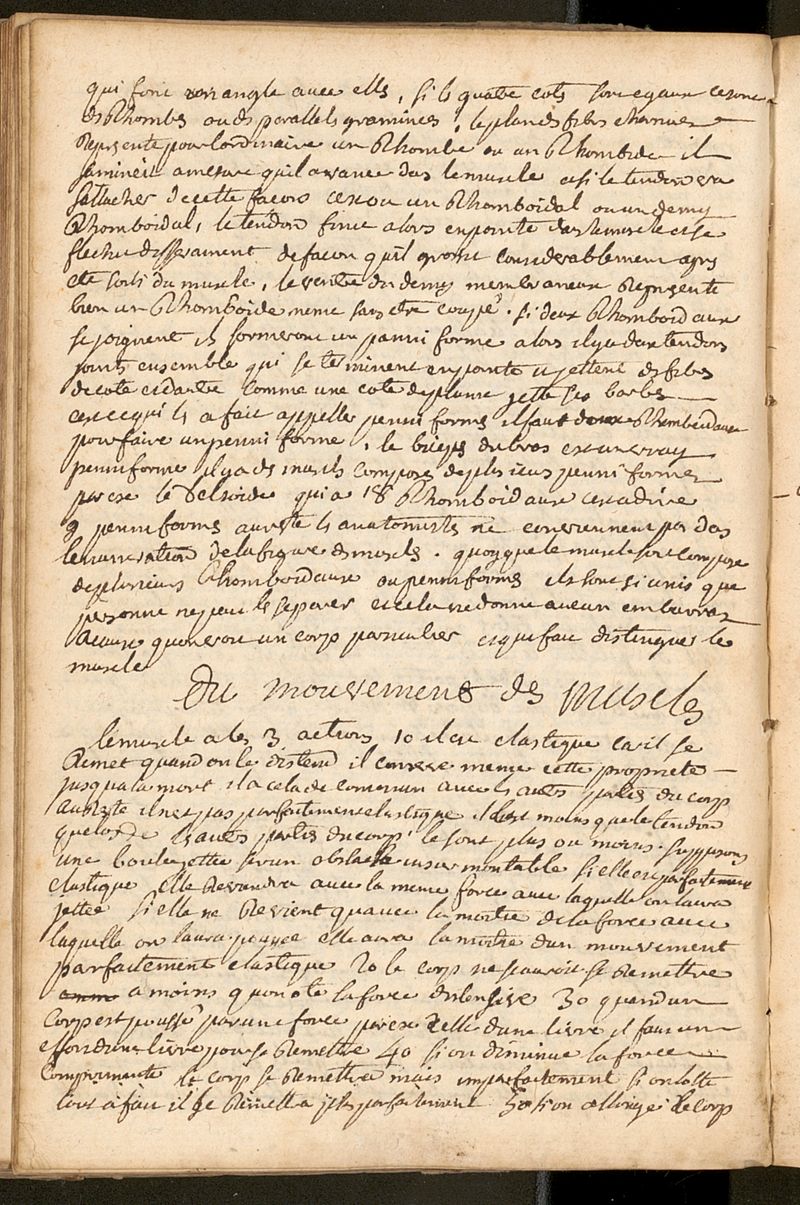 qui font un angle avec elles, si les quatre cotés sont egaux ce sont
des Rhombes ou des parallelsgrammes, le plan des fibres charnues
Represente pour l'ordinaire un Rhombe ou un Rhomboide il
samincit a mesure quil avance dans le muscle et si le tendon va
sattacher de cette facon cest ou un Rhomboidal ou un demy
Rhomboidal, le tendon finit alors en pointe dans le muscle et se
flechit de facon quil grossit considerablement apres
etre sorti du muscle, le ventre du demy membraneux Represente
bien un Rhomboide meme sans etre coupé. si deux Rhomboidaux
se joignent ils formeront un penni forme alors il y a deux tendons
joints ensemble qui se terminent en pointe et jettent des fibres
de cote et dautre comme une cote de plume jette ses barbes
cest ce qui les a fait appeller penni formes il faut deux Rhomboidaux
pour faire un penni forme, le biceps du bras est un vray
penniforme il y a des muscles composes de plusieurs penni formes
par ex le deltoide qui a 18 Rhomboidaux cest a dire
9 penniformes au reste les anatomistes ne conviennent pas dans
lenumeration de la figure des muscles. quoyque le muscle soit compose
de plusieurs Rhomboidaux ou penniformes ils sont si unis que
personne ne peut les separer et cela ne donne aucun embarras
a cause quon en voit un corps particulier et qui fait distinguer le
muscle
Du mouvement des Muscles
le muscle a les 3 actions 1o il est elastique car il se
Remet quand on le distend il conserve meme cette proprieté
jusqua la mort il a cela de commun avec les autres parties du corps
au reste il nest pas parfaitement elastique il lest moins que le tendon
quelques de les autres parties du corps le sont plus ou moins. supposons
une boule jettée sur un obstacle insurmontable si elle est parfaitement
elastique elle Reviendra avec la meme force avec laquelle on laura
jettée si elle ne Revient quavec la moitie de la force avec
laquelle on laura poussee elle aura la moitie dun mouvement
parfaitement elastique 2o le corps ne scauroit se Remettre
a moins quon ote la force distensive 3o quand un
corps est poussé par une force par ex celle dune livre il faut un
effort dune livre pour se Remettre 4o si on diminue la force
comprimante le corps se Remettra mais imparfaitement si on lotte
tout a fait il se Remettra plus parfaitement 5o si on allonge le corps